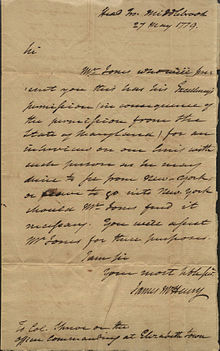 Head Qrs. Middlebrook
27 May 1779.
Sir
Mr. Jones who will pre
sent you this has his Excellency's
permission (in consequence of
the permission from the
State of Maryland) for an
interview on our lines with
such person as he may
desire to see from New-York
or leave to go into New York
should Mr. Jones find it
necessary. You will assist
Mr Jones for these purposes.
I am sir
Your most hble Ser.
James McHenry
To Col. Shreve or the
officer commanding at Elizabeth Town